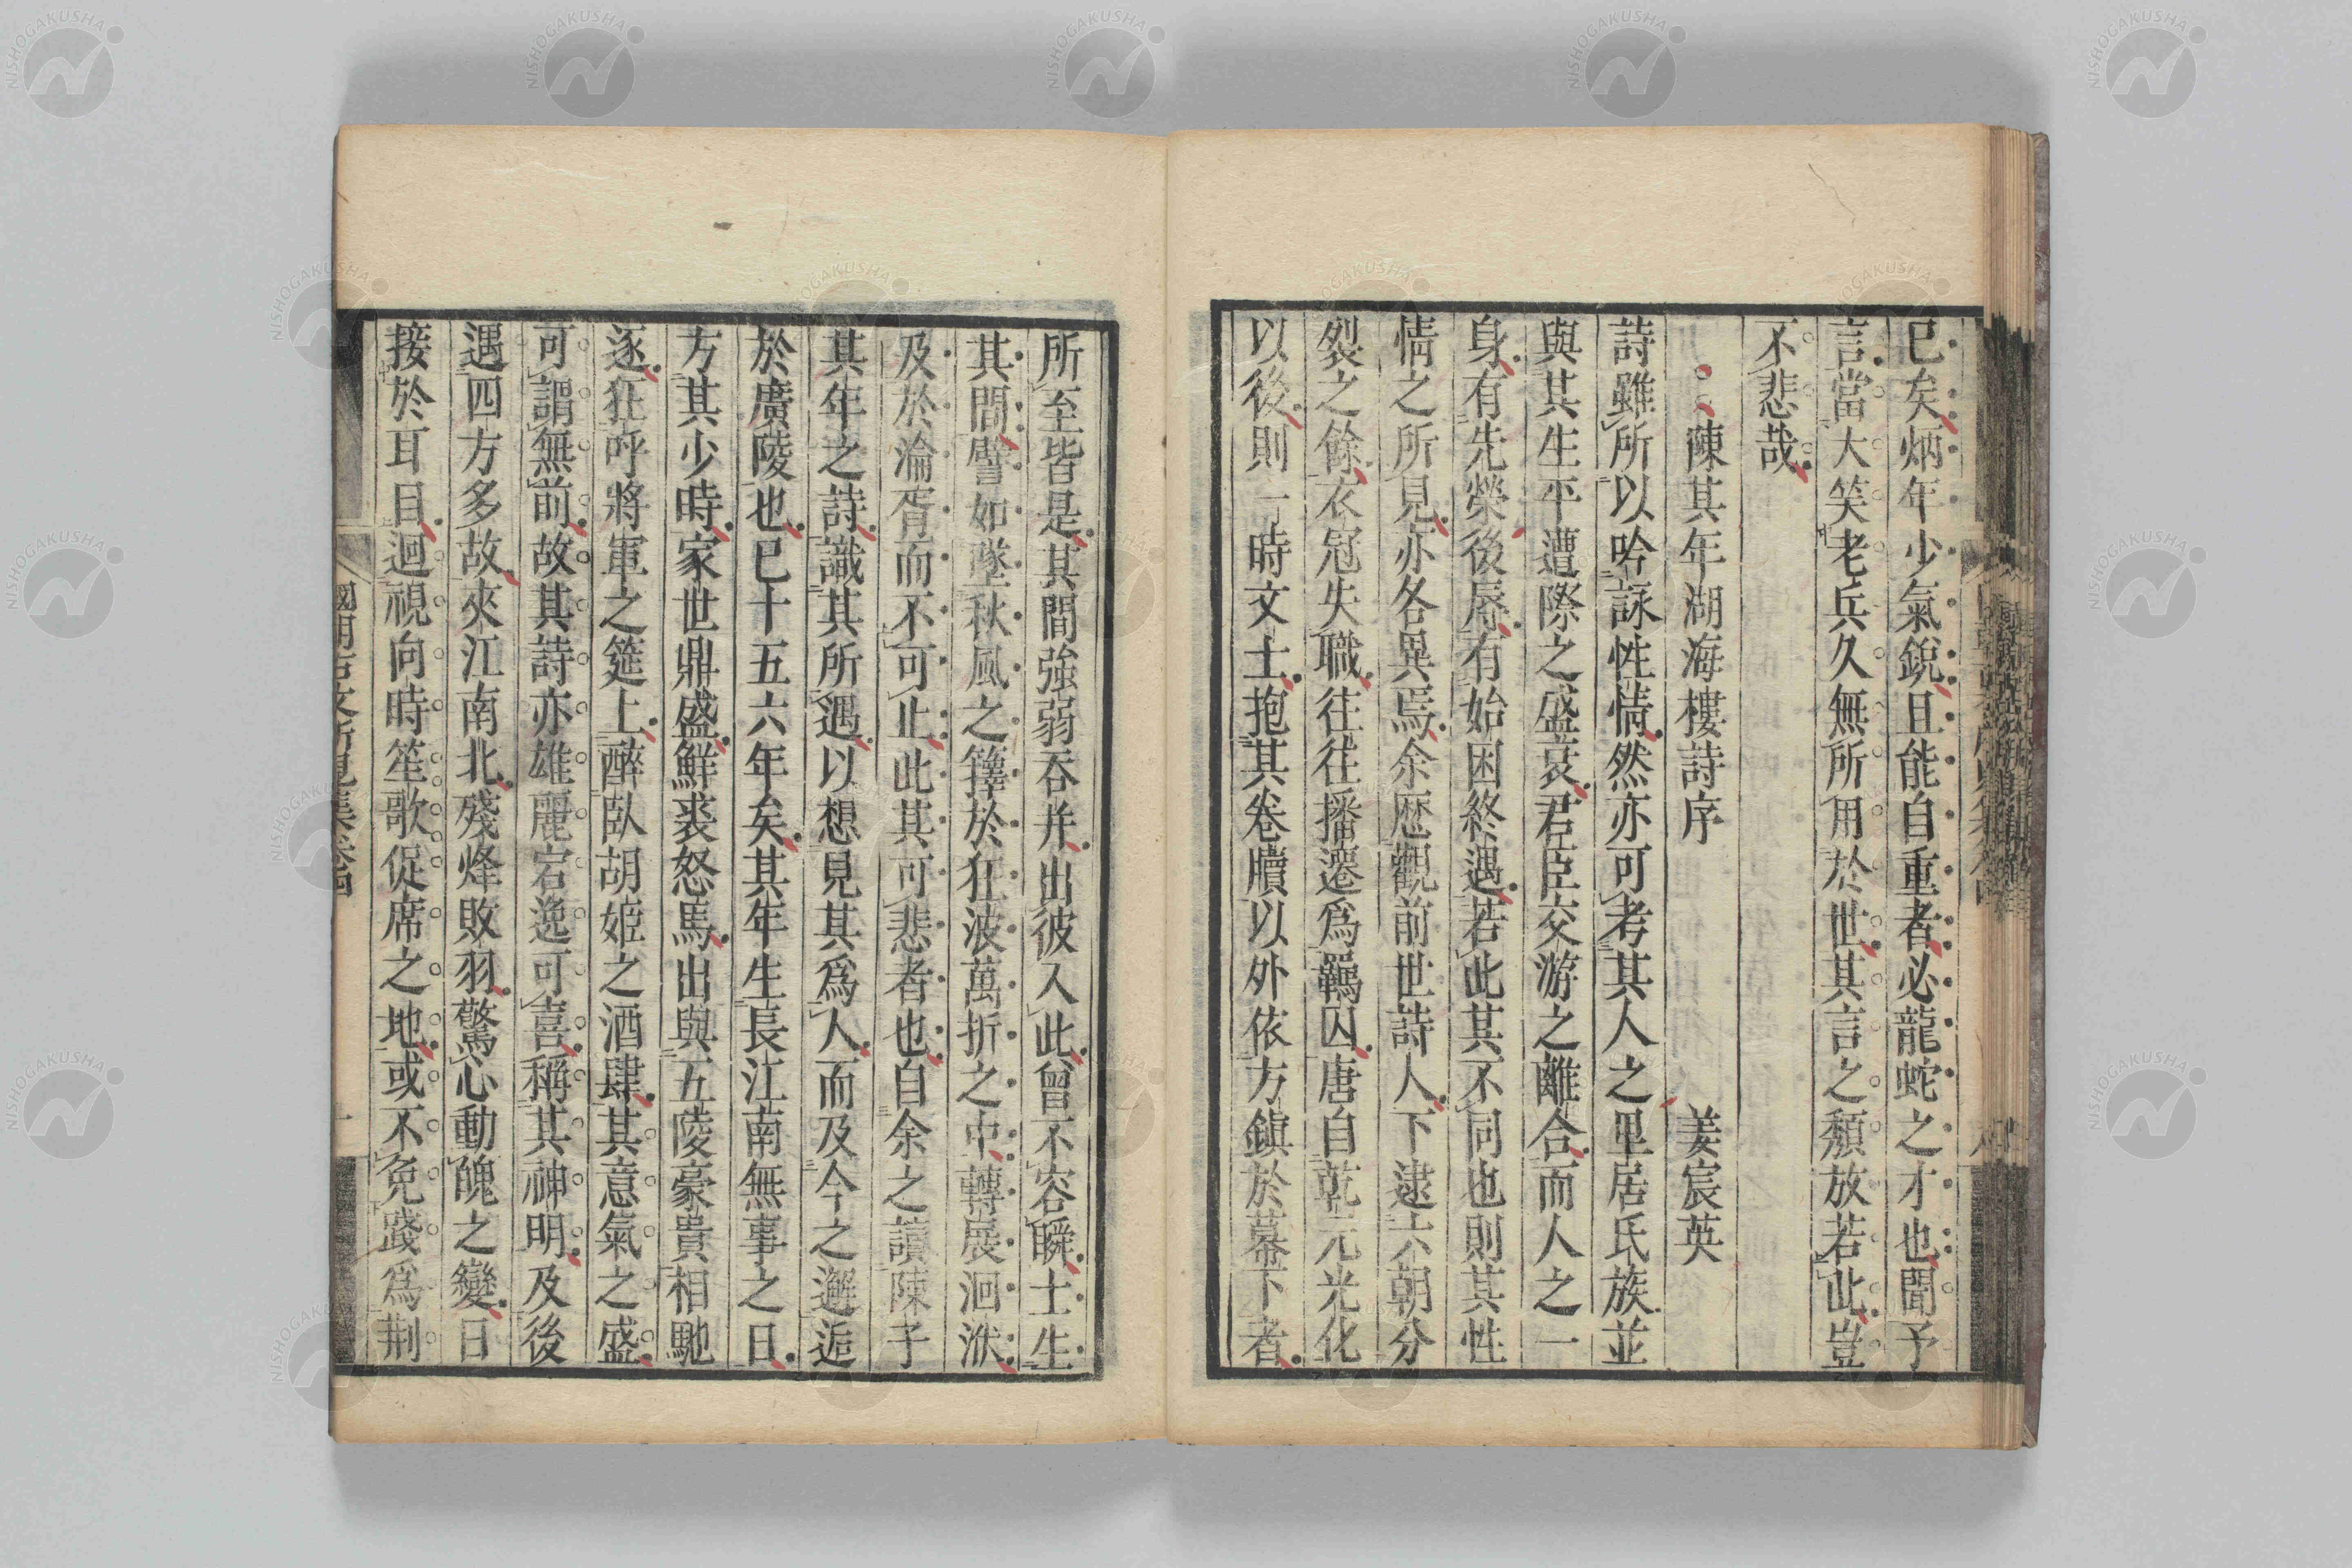 已矣炳年少氣銳且能自重者必龍蛇之才也聞予
言當大笑老兵久無所用於世其言之頽放若此豈
不悲哉
陳其年湖海樓詩序
姜宸英
詩雖所以吟詠性情然亦可考其人之里居氏族並
與其生平遭際之盛衰君臣交游之離合而人之一
身有先榮後辱有始困終遇若此其不同也則其性
情之所見亦各異焉余歷觀前世詩人下逮六朝分
裂之餘衣冠失職往往播遷爲羈囚唐自乾元光化
以後則一時文士抱其卷牘以外依方鎮於幕下者
所至皆是其間強弱吞并出彼入此曾不容瞬士生
其間譬如墜秋風之籜於狂波萬折之中轉展洄洑
及於淪胥而不可止此其可悲者也自余之讀陳子
其年之詩識其所遇以想見其爲人而及今之邂逅
於廣陵也已十五六年矣其年生長江南無事之日
方其少時家世鼎盛鮮裘怒馬出與五陵豪貴相馳
逐狂呼將軍之筵上醉臥胡姬之酒肆其意氣之盛
可謂無前故其詩亦雄麗宕逸可喜稱其神明及後
遇四方多故夾江南北殘烽敗羽驚心動魄之變日
接於耳目迴視向時笙歌促席之地或不免踐爲荆
國朝古文所見集卷四
NISHOGAKUSHA